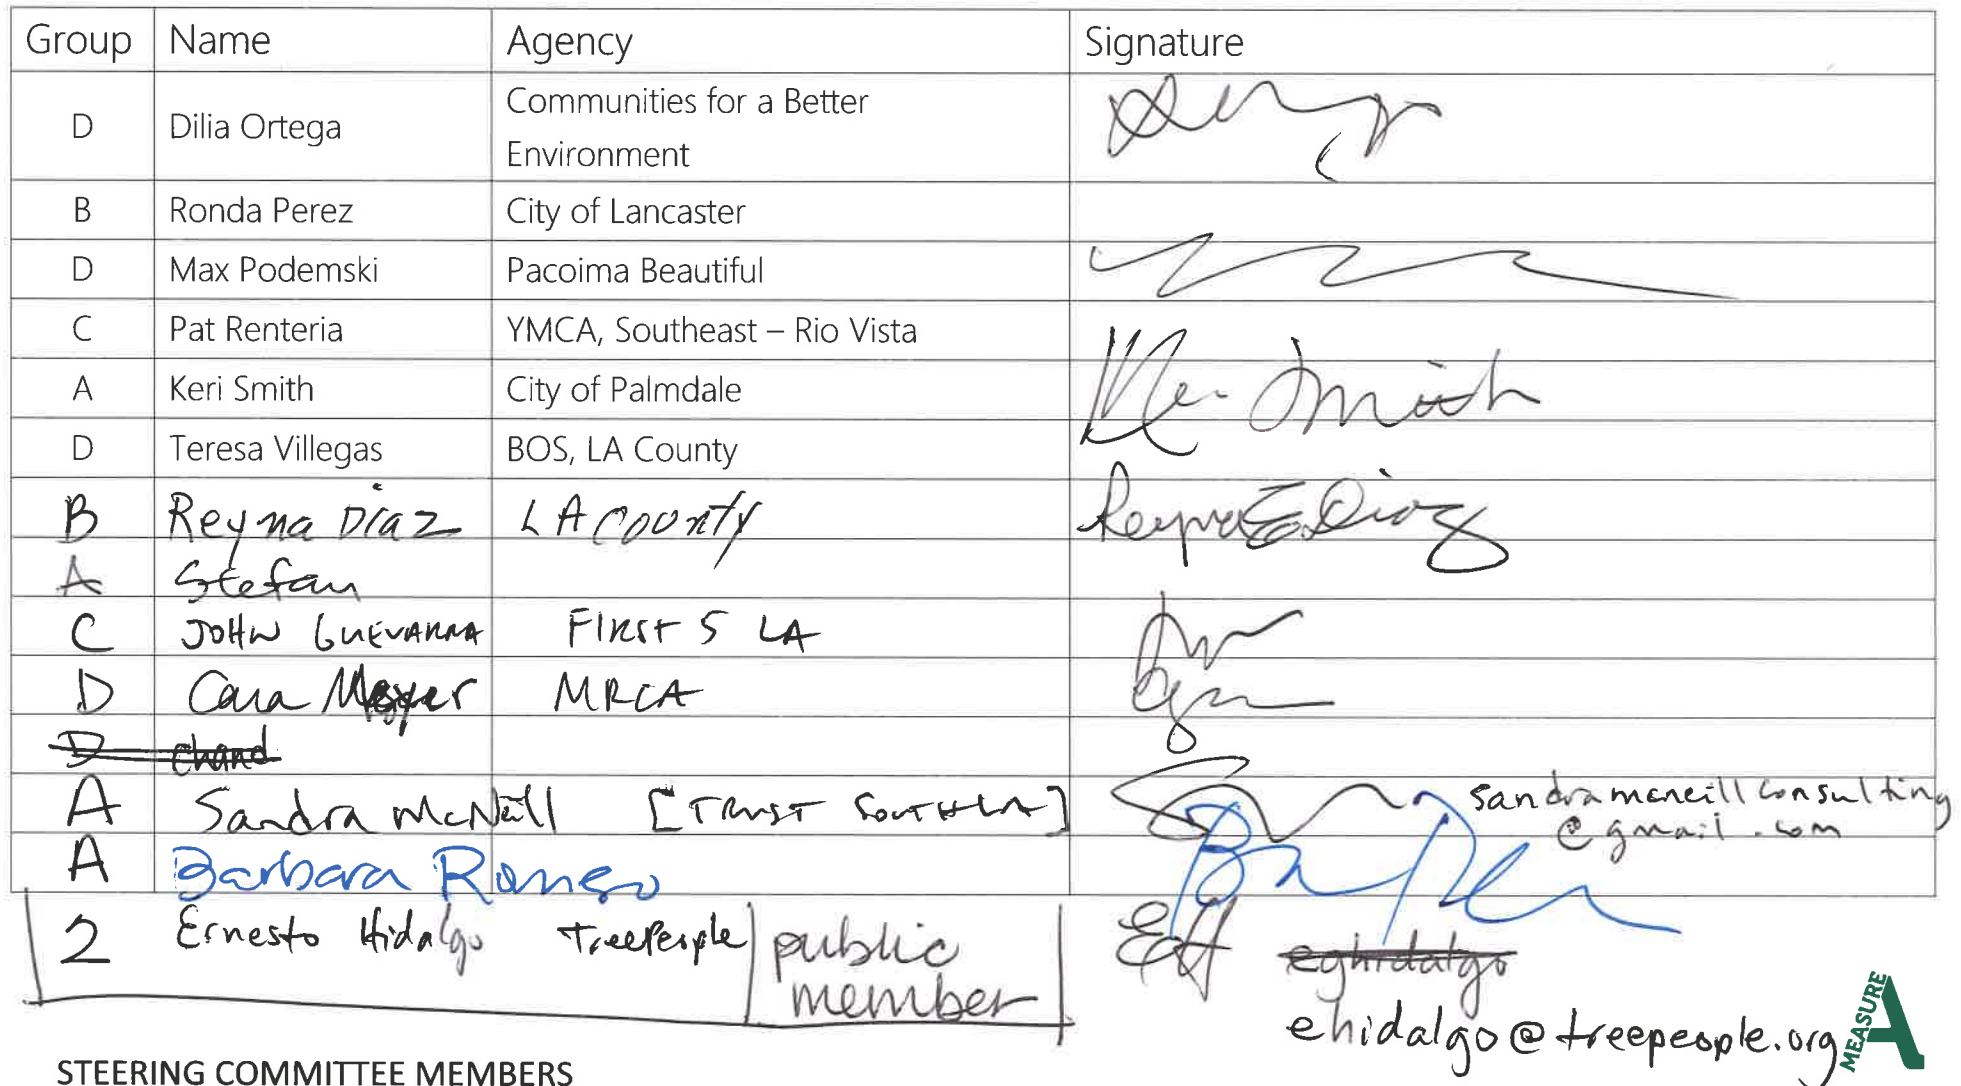 Group Name Agency Signature
D Dilia Ortega Communities for a Better
Environment
B Ronda Perez City of Lancaster
D Max Podemski Pacoima Beautiful
C Pat Renteria YMCA, Southeast – Rio Vista
A Keri Smith City of Palmdale Keri Smith
D Teresa Villegas BOS, LA County
B Reyna Diaz LA County Reyna E. Diaz
A Stefan
C JOHN GUEVARRA FIRST 5 LA
D Cara Meyer MRCA
D chand
A Sandra McNeill [TRUST SOUTH LA] sandramcneillconsulting
@gmail.com
A Barbara Romero
2 Ernesto Hidalgo TreePeople public
member
EH eghidalgo
ehidalgo@treepeople.org
MEASURE A
STEERING COMMITTEE MEMBERS